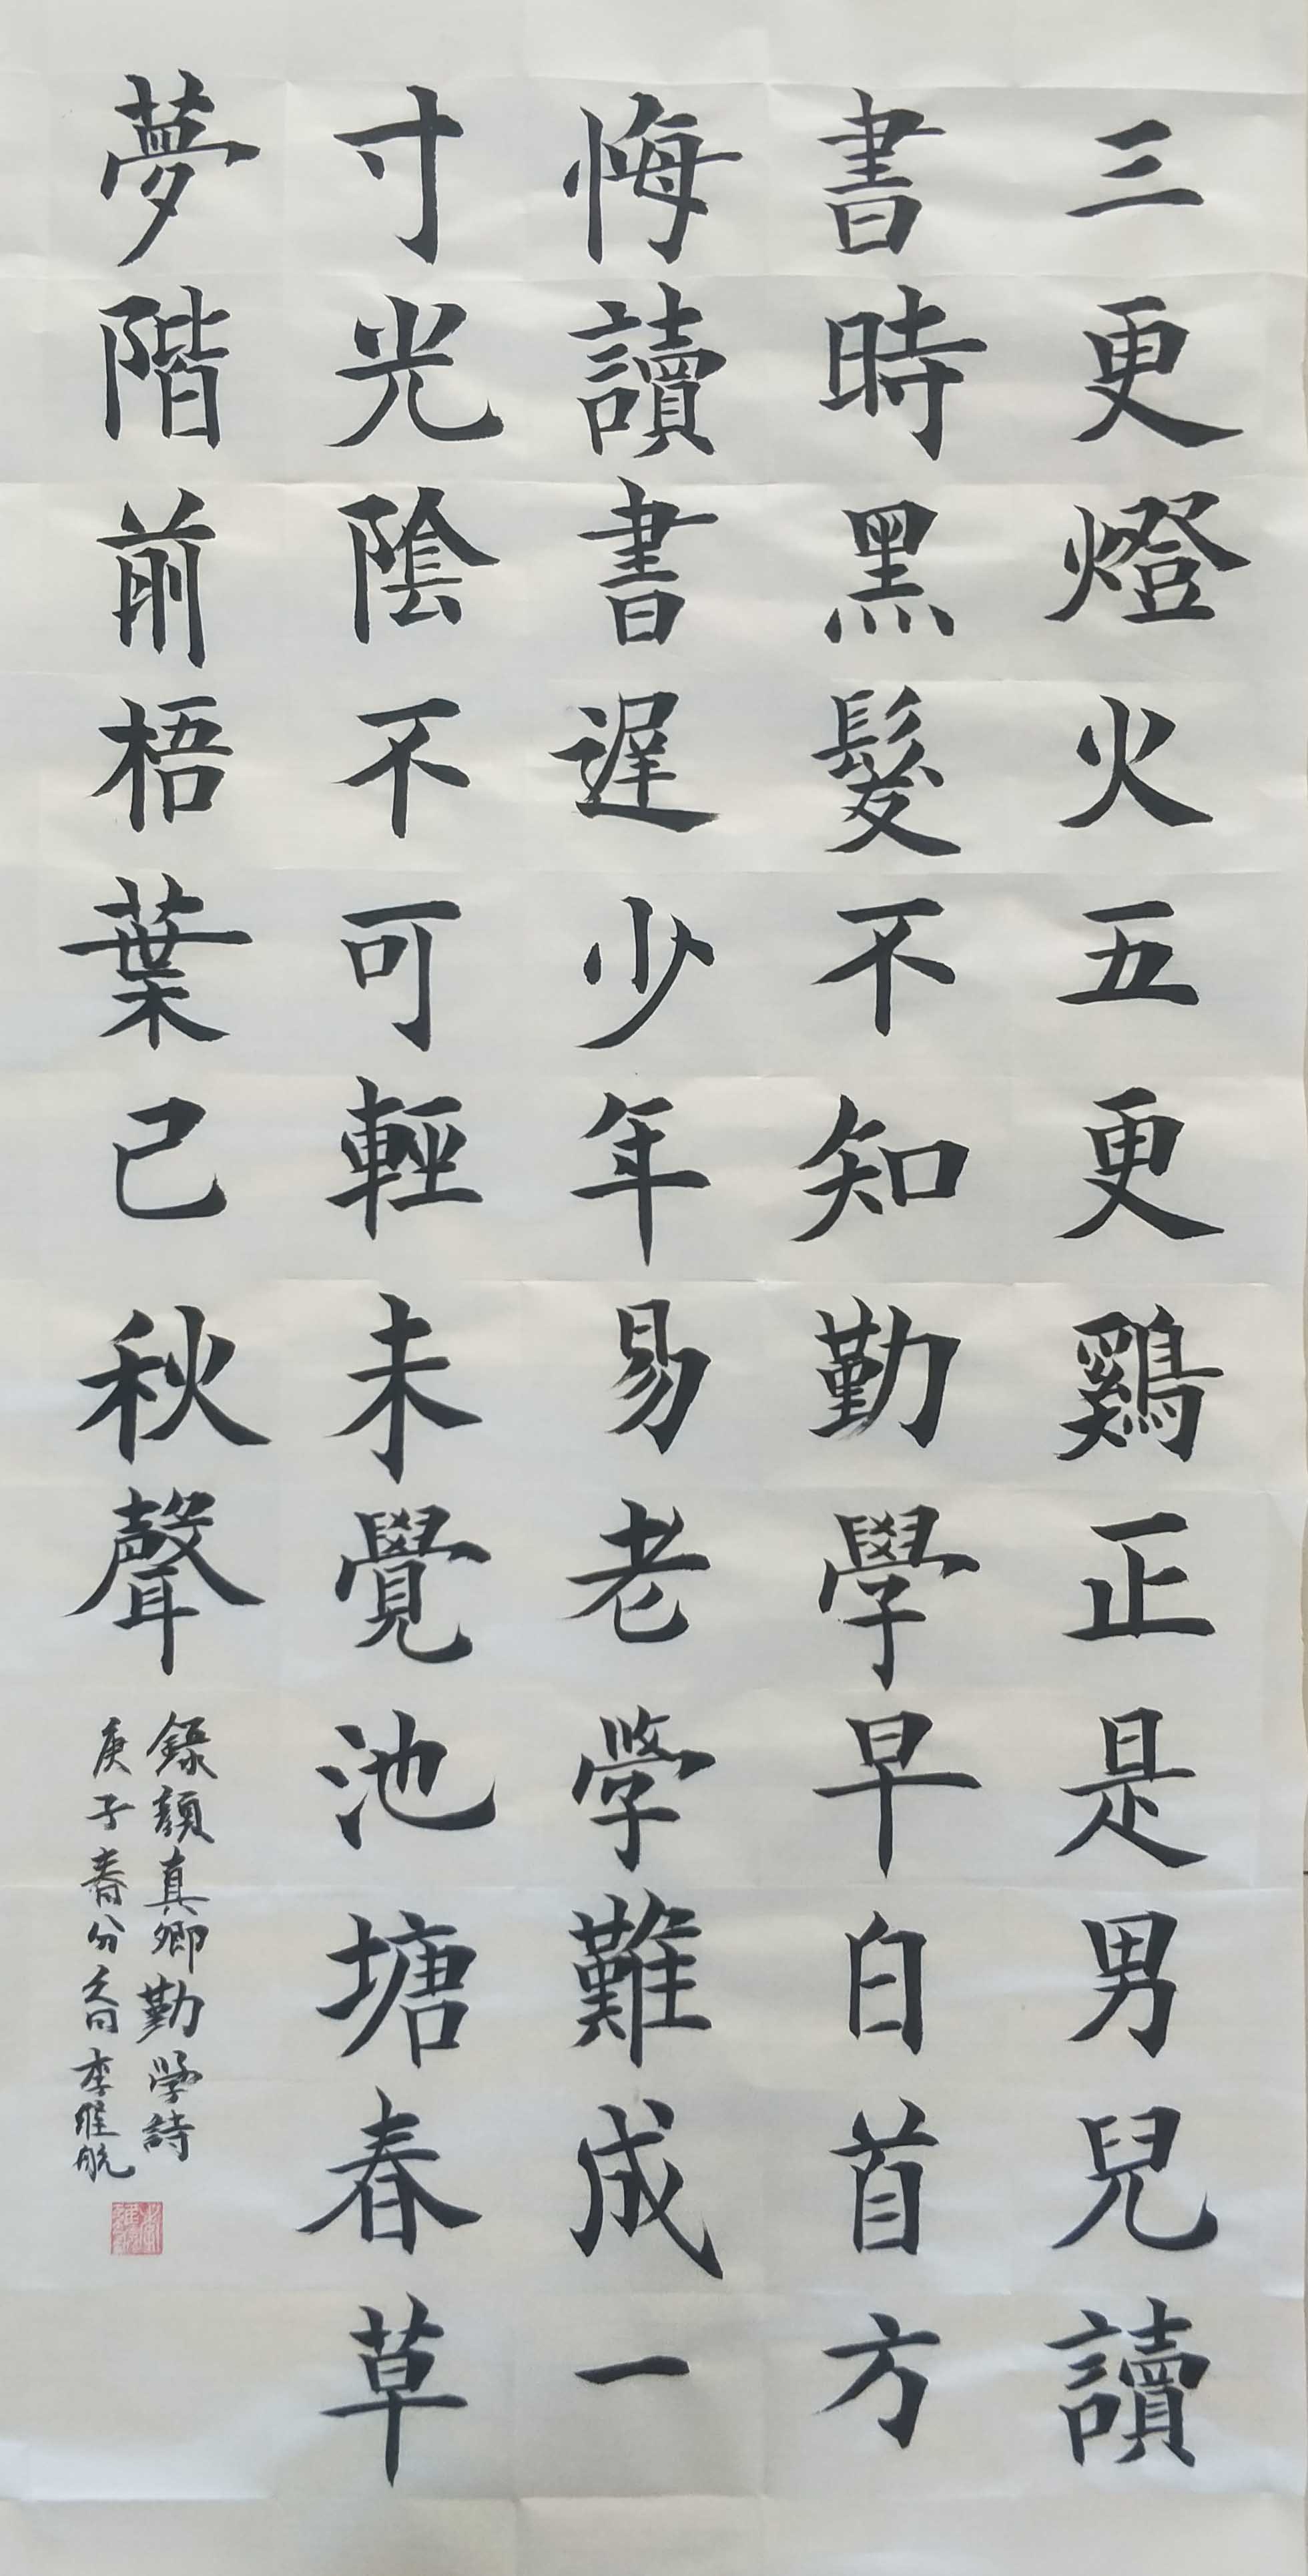 三更燈火五更鷄正是男兒讀
書時黑髮不知勤學早白首方
悔讀書遲少年易老學難成一
寸光陰不可輕未覺池塘春草
夢階前梧葉已秋聲
錄顏真卿勤學詩
庚子春分前李維航